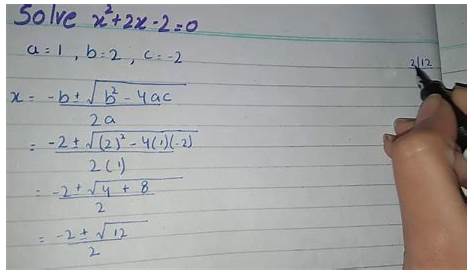 Solve x²+2x-2=0
a=1 , b=2 , c=-2
2|12
x = -b±√b²-4ac / 2a
= -2±√(2)²-4(1)(-2) / 2(1)
= -2±√4+8 / 2
= -2±√12 / 2